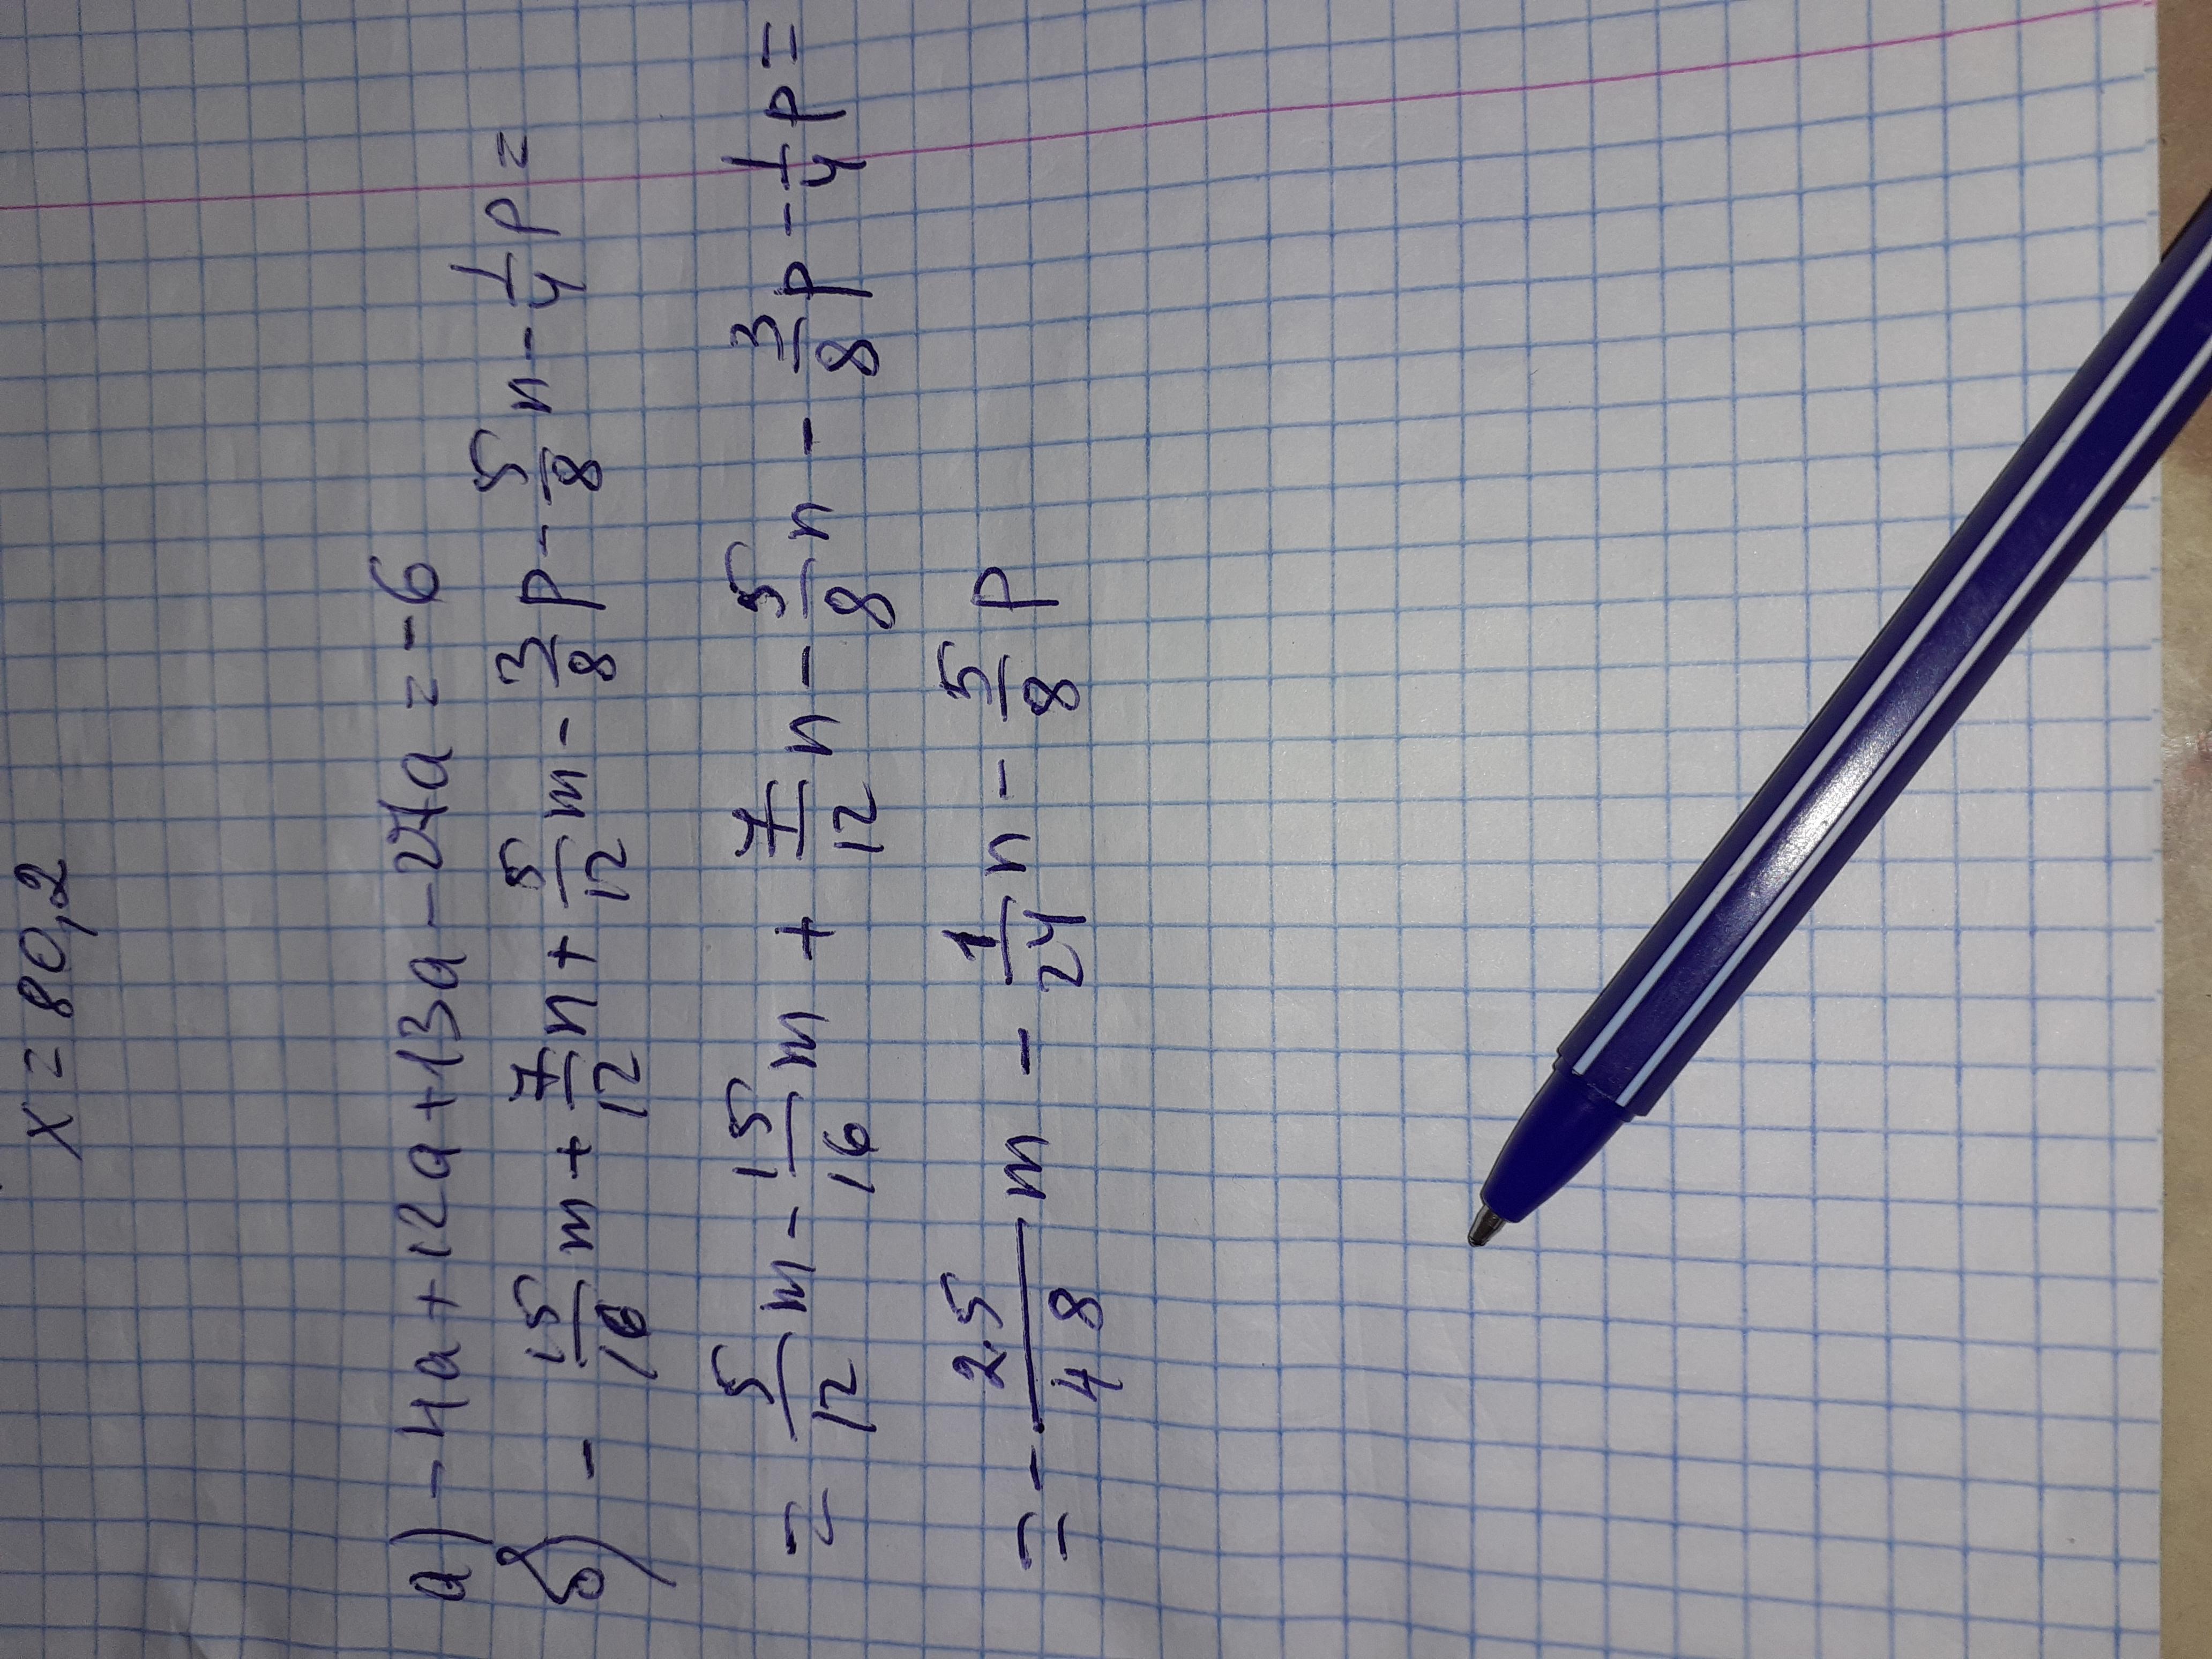 x = 80,2
а) - 4a + 12a + 13a - 27a = -6
б) - 15/16 m + 7/12 n + 5/12 m - 3/8 p - 5/8 n - 1/4 p =
= 5/12 m - 15/16 m + 7/12 n - 5/8 n - 3/8 p - 1/4 p =
= - 25/48 m - 1/24 n - 5/8 p